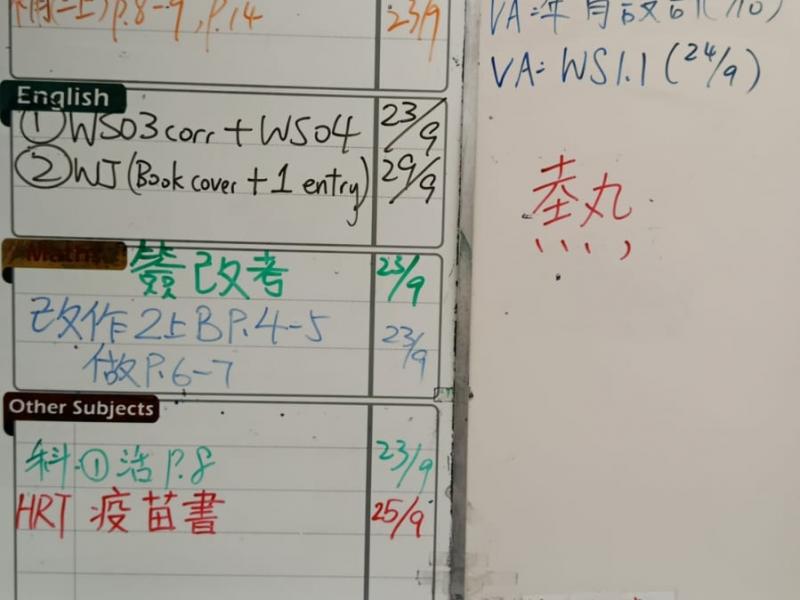 P.8-9, P.14 23/9
VA:
VA: WS1.1 (24/9)
English
① WS03 corr + WS04 23/9
② WJ (Book cover + 1 entry) 29/9
熱
Maths
簽改考 23/9
改作2上B P.4-5 23/9
做P.6-7
Other Subjects
科①活 P.8 23/9
HRT 疫苗書 25/9